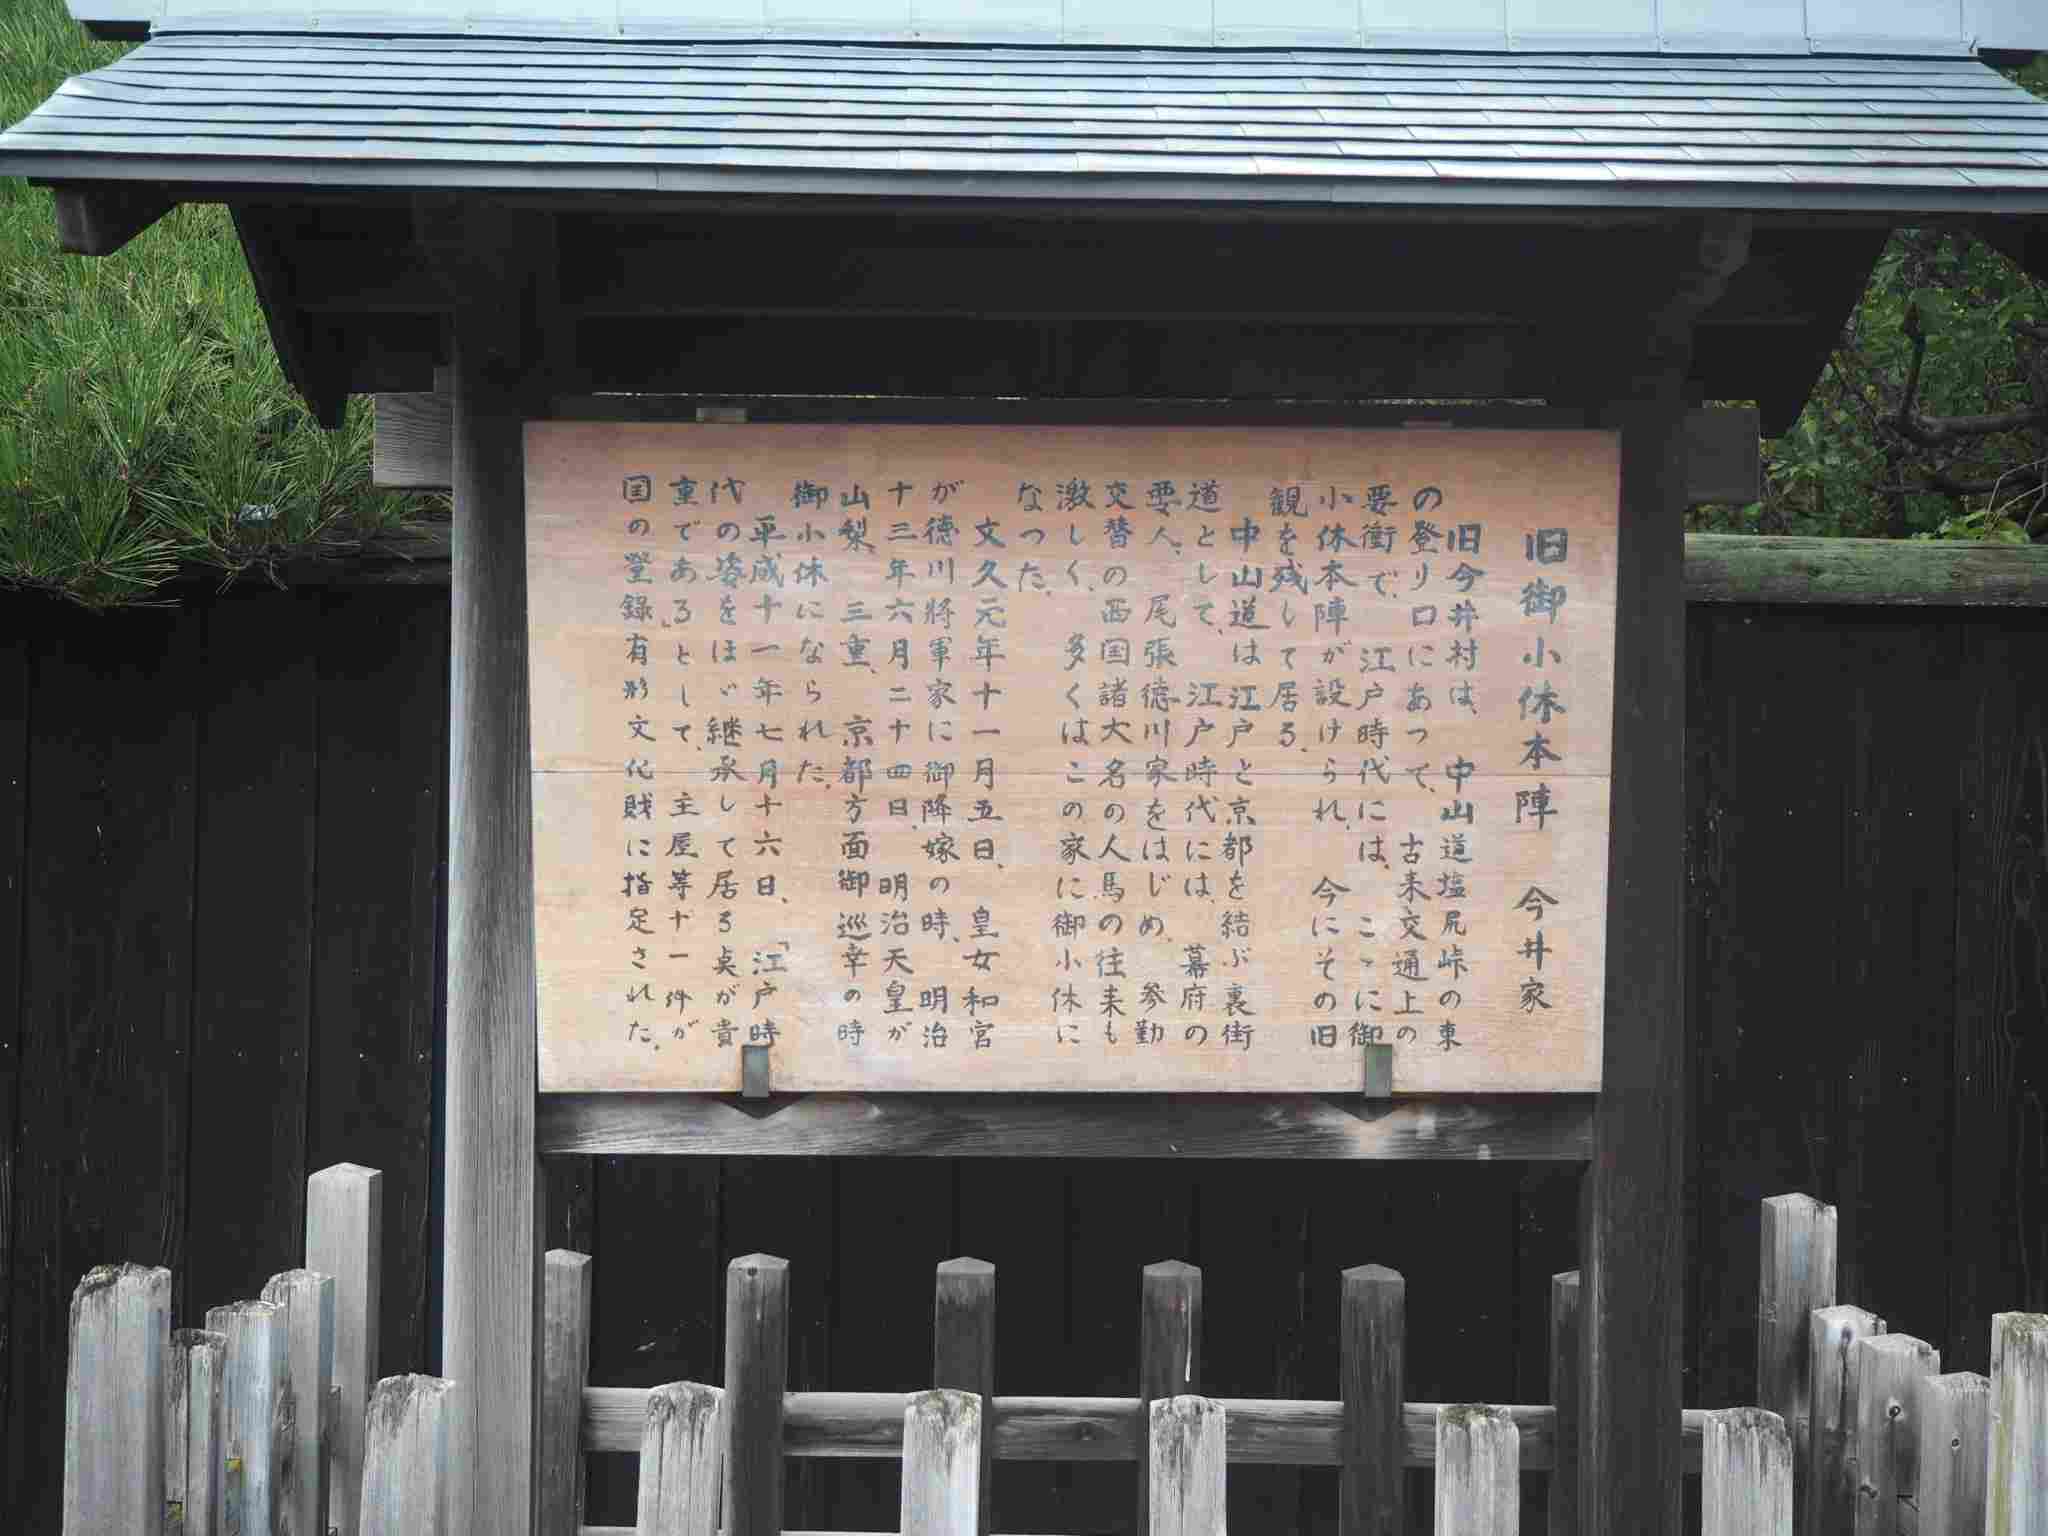 旧御小休本陣　今井家
旧今井村は、中山道塩尻峠の東
の登り口にあって、古来交通上の
要衝で、江戸時代には、こゝに御
小休本陣が設けられ、今にその旧
観を残して居る。
中山道は江戸と京都を結ぶ裏街
道として、江戸時代には、幕府の
要人、尾張徳川家をはじめ、参勤
交替の西国諸大名の人馬の往来も
激しく、多くはこの家に御小休に
なった。
文久元年十一月五日、皇女和宮
が徳川将軍家に御降嫁の時、明治
十三年六月二十四日、明治天皇が
山梨、三重、京都方面御巡幸の時
御小休になられた。
平成十一年七月十六日、「江戸時
代の姿をほゞ継承して居る点が貴
重である」として、主屋等十一件が
国の登録有形文化財に指定された。